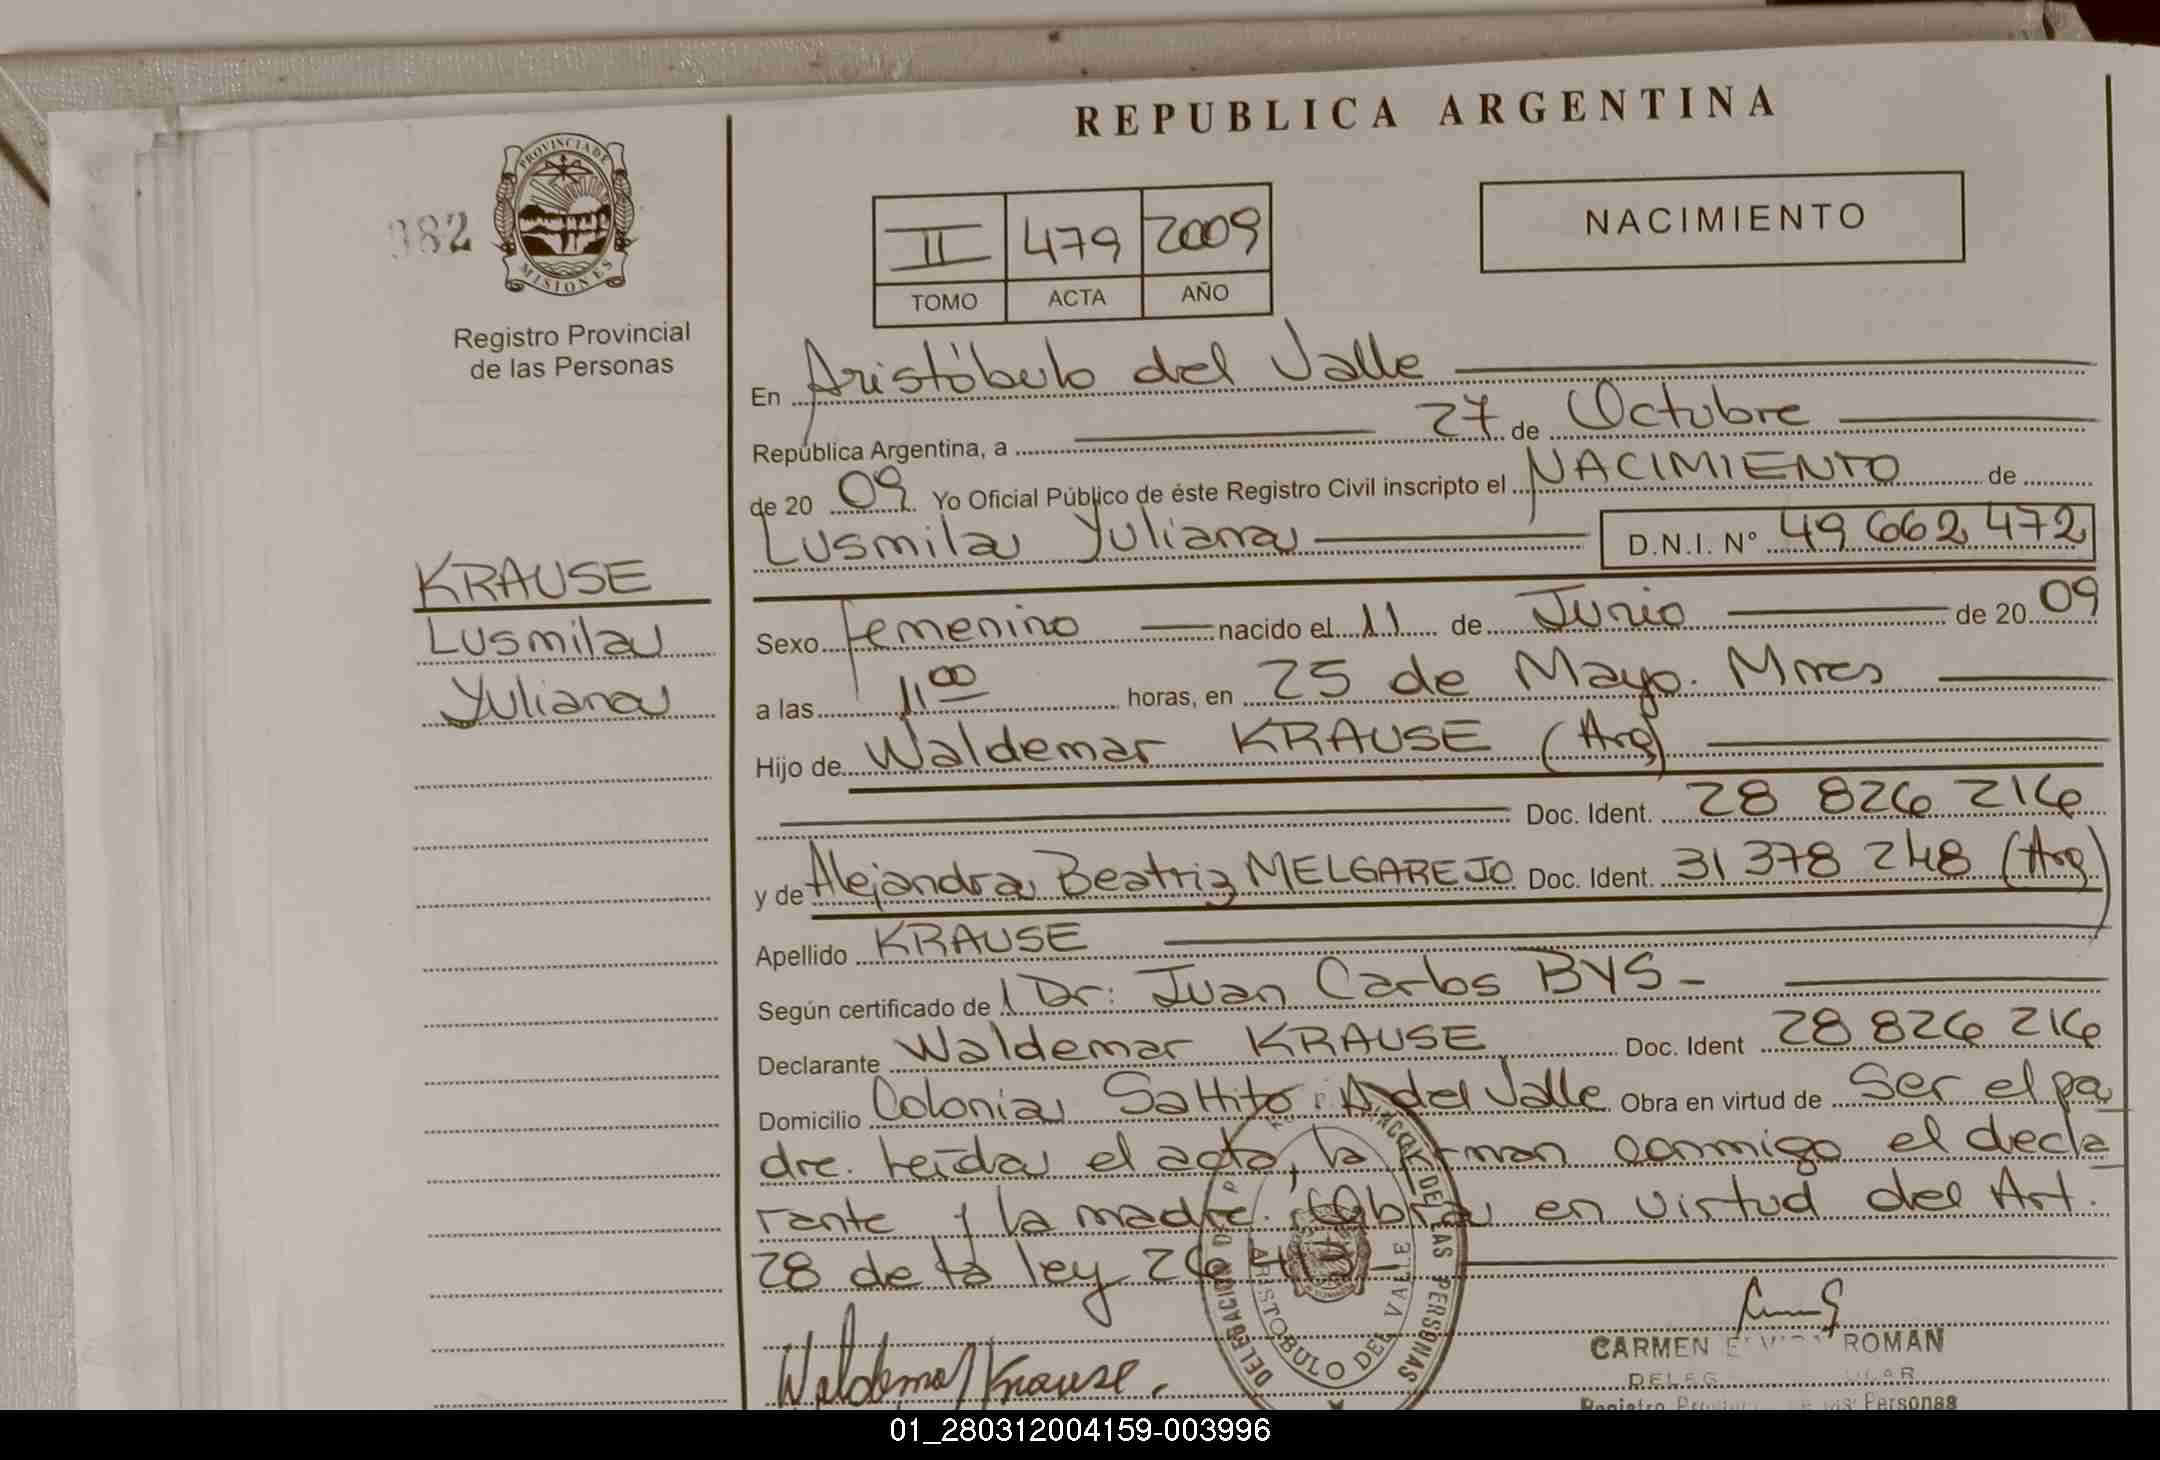 REPUBLICA ARGENTINA
982
PROVINCIA DE
MISIONES
Registro Provincial
de las Personas
II 479 2009
TOMO ACTA AÑO
NACIMIENTO
En Aristóbulo del Valle
República Argentina, a 27 de Octubre
de 20 09 Yo Oficial Público de éste Registro Civil inscripto el NACIMIENTO de
Lusmila Yuliana D.N.I. Nº 49 662 472
KRAUSE
Lusmila
Yuliana
Sexo femenino nacido el 11 de Junio de 20 09
a las 11 00 horas, en 25 de Mayo. Mnes
Hijo de Waldemar KRAUSE (Arg)
Doc. Ident. 28 826 216
y de Alejandra Beatriz MELGAREJO Doc. Ident. 31 378 248 (Arg)
Apellido KRAUSE
Según certificado de l Dr: Juan Carlos BYS -
Declarante Waldemar KRAUSE Doc. Ident 28 826 216
Domicilio Colonia Saltito. A del Valle Obra en virtud de Ser el pa
dre. Leída el acta, la firman conmigo el decla
rante y la madre. Obra en virtud del Art.
28 de la ley 26 413 -
DELEGACION DE LAS PERSONAS
ARISTOBULO DEL VALLE
Waldemar Krause.
CARMEN ELVIRA ROMAN
Personas
01_280312004159-003996